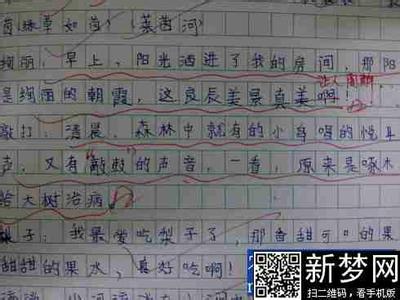 茵：绿草如茵）（莱茵河）
绚丽：早上，阳光洒进了我的房间，那阳
是绚丽的朝霞，这良辰美景真美啊！
敲打：清晨，森林中就有的小鸟唱的悦耳
声，又有“敲敲”的声音，一看，原来是啄木
给大树治病。
梨子：我最爱吃梨子了，那香甜可口的果
甜甜的果水，真好吃啊！
新梦网
扫二维码，看手机版